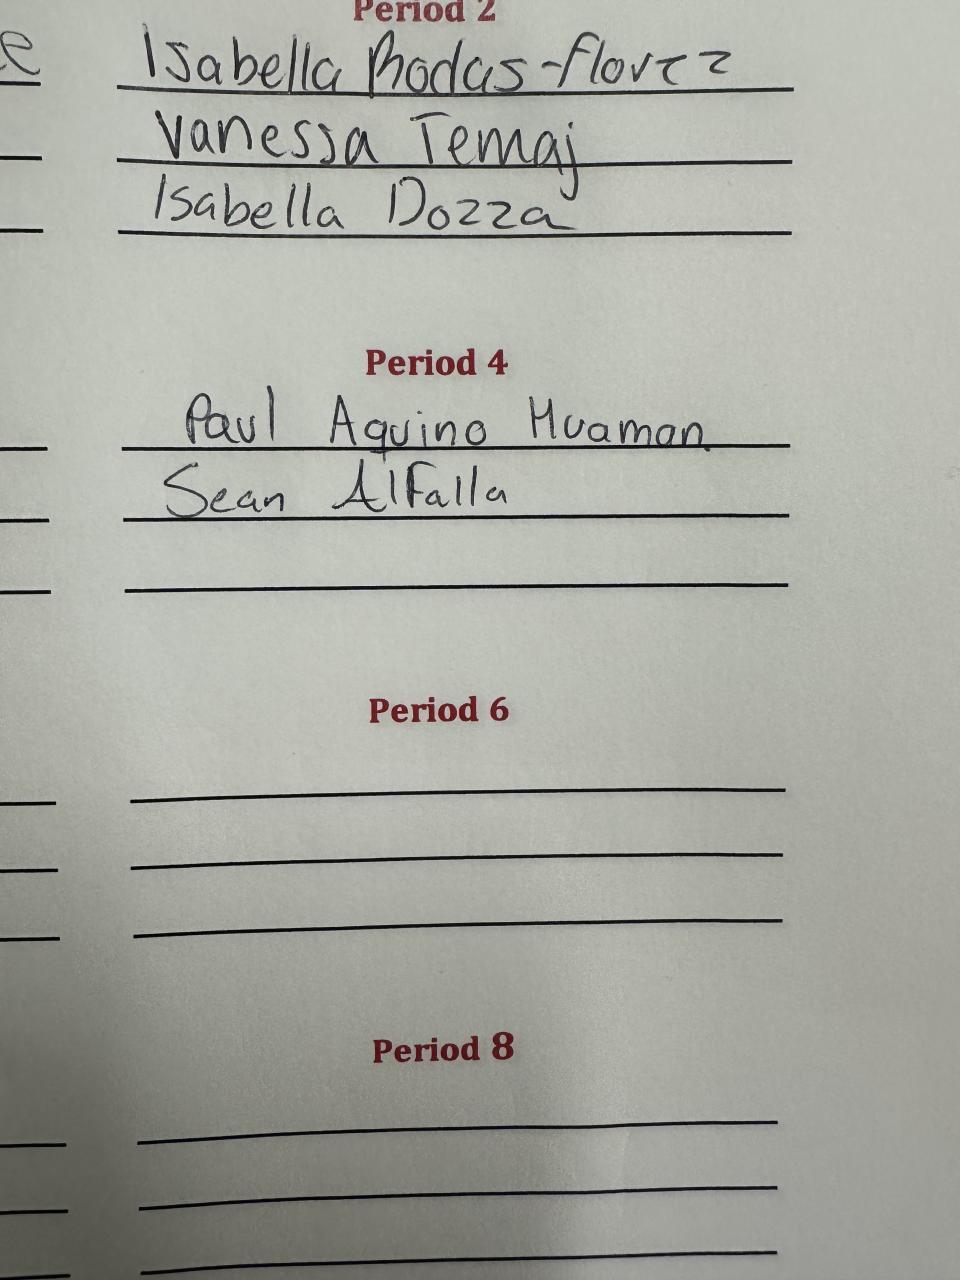 Period 2
Isabella Rodas-florez
Vanessa Temaj
Isabella Dozza
Period 4
Paul Aquino Huaman
Sean AlFalla
Period 6
Period 8